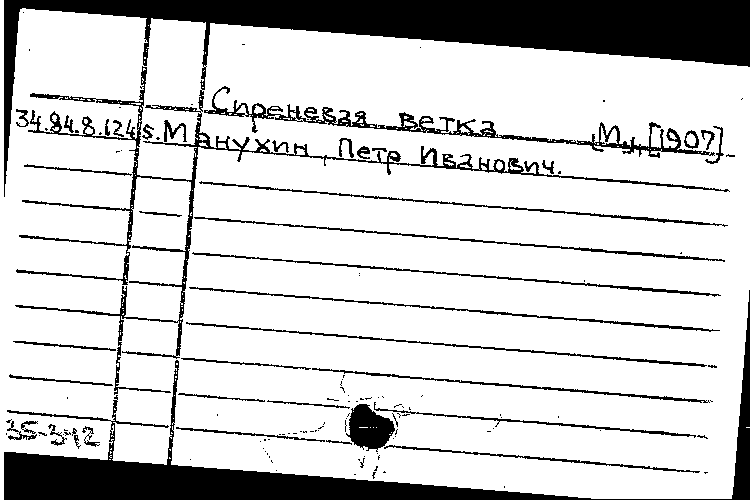 Сиреневая ветка [М., [1907]
34.84.8.124 s. Манухин, Петр Иванович.
35-342